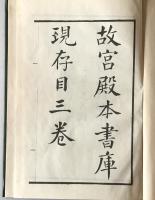 故宮殿本書庫
現存目三卷